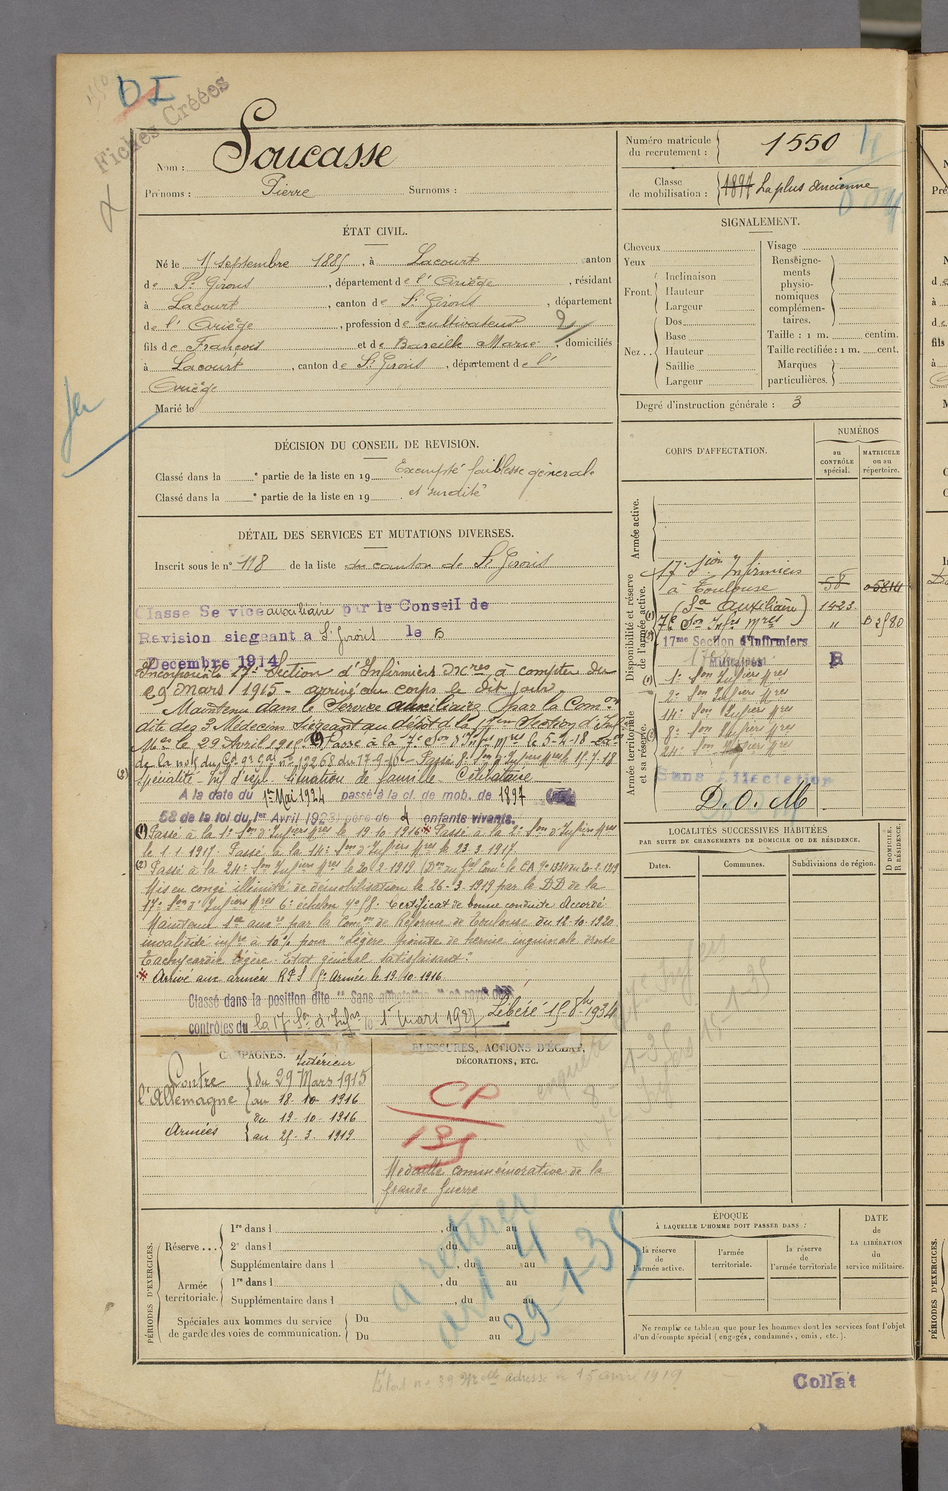 DI
Fiches Créées
Nom : Soucasse
Prénoms : Pierre Surnoms :
Numéro matricule du recrutement : 1550
Classe de mobilisation : 1897 La plus ancienne
ÉTAT CIVIL.
Né le 15 septembre 1885, à Lacourt canton
de St Girons, département de l'Ariège, résidant
à Lacourt, canton de St Girons, département
de l'Ariège, profession de cultivateur
fils de François et de Bareille Marie, domiciliés
à Lacourt, canton de St Girons, département de l'
Ariège
Marié le
SIGNALEMENT.
Cheveux
Yeux
Front Inclinaison
Hauteur
Largeur
Nez Dos
Base
Hauteur
Saillie
Largeur
Visage
Renseigne-
ments
physio-
nomiques
complémen-
taires.
Taille : 1 m. centim.
Taille rectifiée : 1 m. cent.
Marques
particulières.
Degré d'instruction générale : 3
DÉCISION DU CONSEIL DE REVISION.
Classé dans la e partie de la liste en 19 Exempté faiblesse générale
Classé dans la e partie de la liste en 19 et surdité
DÉTAIL DES SERVICES ET MUTATIONS DIVERSES.
Inscrit sous le n° 118 de la liste du canton de St Girons
Classé Service auxiliaire par le Conseil de
Revision siegeant a St Girons le 5
Decembre 1914
Incorporé à la 17e Section d'Infirmiers Mres à compter du
29 Mars 1915 - arrivé au corps le dit jour
Maintenu dans le Service auxiliaire par la Comon
dite des 3 Médecins siégeant au dépôt de la 17eme Section d'Inf
Mres le 29 Avril 1916. Passé à la 7e Son d'Infrs Mres le 5-2-18
Situation de famille Célibataire
A la date du 1er Mai 1924 passé à la cl. de mob. de 1897
58 de la loi du 1er Avril 1923: père de 4 enfants vivants.
(1) Passé à la 1e Son d'Infiers Mres le 19 10 1916 * Passé à la 2e Son d'Infiers Mres
le 1 1 1917. Passé à la 14e Son d'Infiers Mres le 23 3 1917.
(2) Passé à la 24e Son d'Infiers Mres le 20 2 1919
Mis en congé illimité de démobilisation le 26-3-1919 par le DD de la
17e Son d'Infiers Mres 6e échelon Certificat de bonne conduite Accordé
Maintenu par la Comon de Réforme de Toulouse du 12-10-1920
invalidité infre à 10% pour "Légère pointe de hernie inguinale droite
Tachycardie légère. Etat général satisfaisant."
* Arrivé aux armées le 19 10 1916
Classé dans la position dite "Sans affectation"
contrôles du la 17e Son d'Infrs le 1er Mars 1927 Libéré 15-8bre 1934
CAMPAGNES.
Intérieur
Contre du 29 Mars 1915
l'Allemagne au 18-10-1916
Armées du 19-10-1916
au 25-3-1919
BLESSURES, ACTIONS D'ÉCLAT,
DÉCORATIONS, ETC.
CP
Médaille commémorative de la
Grande Guerre
CORPS D'AFFECTATION.
NUMÉROS
au CONTRÔLE spécial.
MATRICULE ou au répertoire.
Armée active.
Disponibilité et réserve de l'armée active.
Armée territoriale et sa réserve.
17e Sion Infirmiers
à Toulouse 58 05814
(Sce Auxiliaire) 1423
7e Son Infrs Mres " 2580
17me Section d'Infirmiers
Militaires R
1e Son Infiers Mres
2e Son Infiers Mres
14e Son Infiers Mres
8e Son Infiers Mres
24e Son Infiers Mres
Sans Affectation
D.O.M
LOCALITÉS SUCCESSIVES HABITÉES
PAR SUITE DE CHANGEMENTS DE DOMICILE OU DE RÉSIDENCE.
D DOMICILE. R RÉSIDENCE.
Dates. Communes. Subdivisions de région.
PÉRIODES D'EXERCICES.
Réserve 1re dans l , du au
2e dans l , du au
Supplémentaire dans l , du au
Armée territoriale. 1re dans l , du au
Supplémentaire dans l , du au
Spéciales aux hommes du service
de garde des voies de communication.
Du au
Du au
a retirer
29-1-35
ÉPOQUE
À LAQUELLE L'HOMME DOIT PASSER DANS :
la réserve de l'armée active.
l'armée territoriale.
la réserve de l'armée territoriale
DATE
de
LA LIBÉRATION
du
service militaire.
Ne remplir ce tableau que pour les hommes dont les services font l'objet
d'un décompte spécial (engagés, condamnés, omis, etc.).
Collat